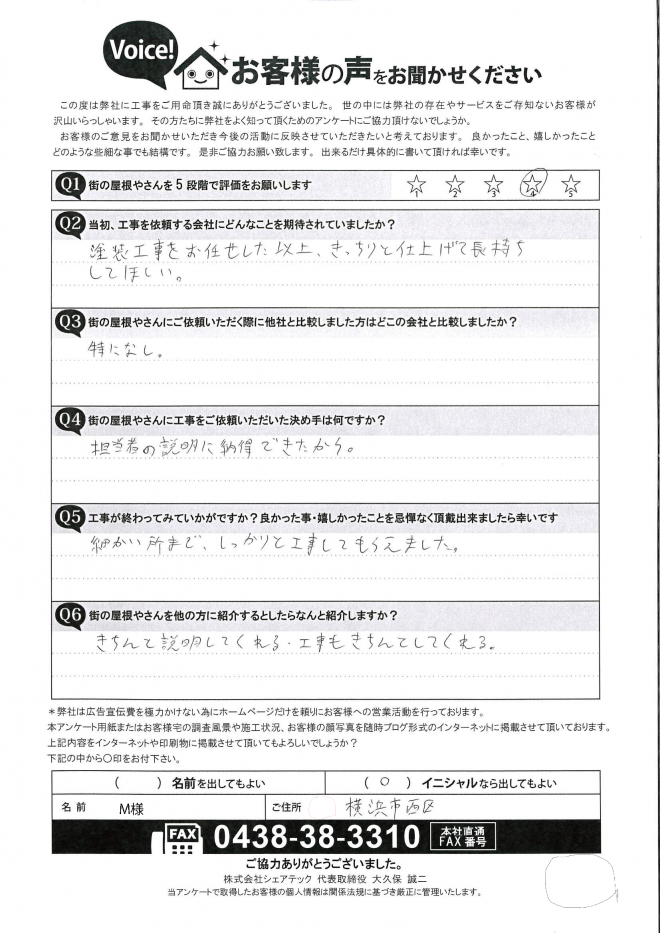 Voice!
お客様の声をお聞かせください
この度は弊社に工事をご用命頂き誠にありがとうございました。 世の中には弊社の存在やサービスをご存知ないお客様が
沢山いらっしゃいます。 その方たちに弊社をよく知って頂くためのアンケートにご協力頂けないでしょうか。
お客様のご意見をお聞かせいただき今後の活動に反映させていただきたいと考えております。 良かったこと、嬉しかったこと
どのような些細な事でも結構です。 是非ご協力お願い致します。 出来るだけ具体的に書いて頂ければ幸いです。
Q1 街の屋根やさんを5段階で評価をお願いします 1 2 3 4 5
Q2 当初、工事を依頼する会社にどんなことを期待されていましたか?
塗装工事をお任せした以上、きっちりと仕上げて長持ち
してほしい。
Q3 街の屋根やさんにご依頼いただく際に他社と比較しました方はどこの会社と比較しましたか?
特になし。
Q4 街の屋根やさんに工事をご依頼いただいた決め手は何ですか?
担当者の説明に納得できたから。
Q5 工事が終わってみていかがですか?良かった事・嬉しかったことを忌憚なく頂戴出来ましたら幸いです
細かい所まで、しっかりと工事してもらえました。
Q6 街の屋根やさんを他の方に紹介するとしたらなんと紹介しますか?
きちんと説明してくれる・工事もきちんとしてくれる。
*弊社は広告宣伝費を極力かけない為にホームページだけを頼りにお客様への営業活動を行っております。
本アンケート用紙またはお客様宅の調査風景や施工状況、お客様の顔写真を随時ブログ形式のインターネットに掲載させて頂いております。
上記内容をインターネットや印刷物に掲載させて頂いてもよろしいでしょうか?
下記の中から〇印をお付下さい。
( ) 名前を出してもよい ( ○ ) イニシャルなら出してもよい
名前 M様 ご住所 横浜市西区
FAX 0438-38-3310 本社直通 FAX番号
ご協力ありがとうございました。
株式会社シェアテック 代表取締役 大久保 誠二
当アンケートで取得したお客様の個人情報は関係法規に基づき厳正に管理いたします。